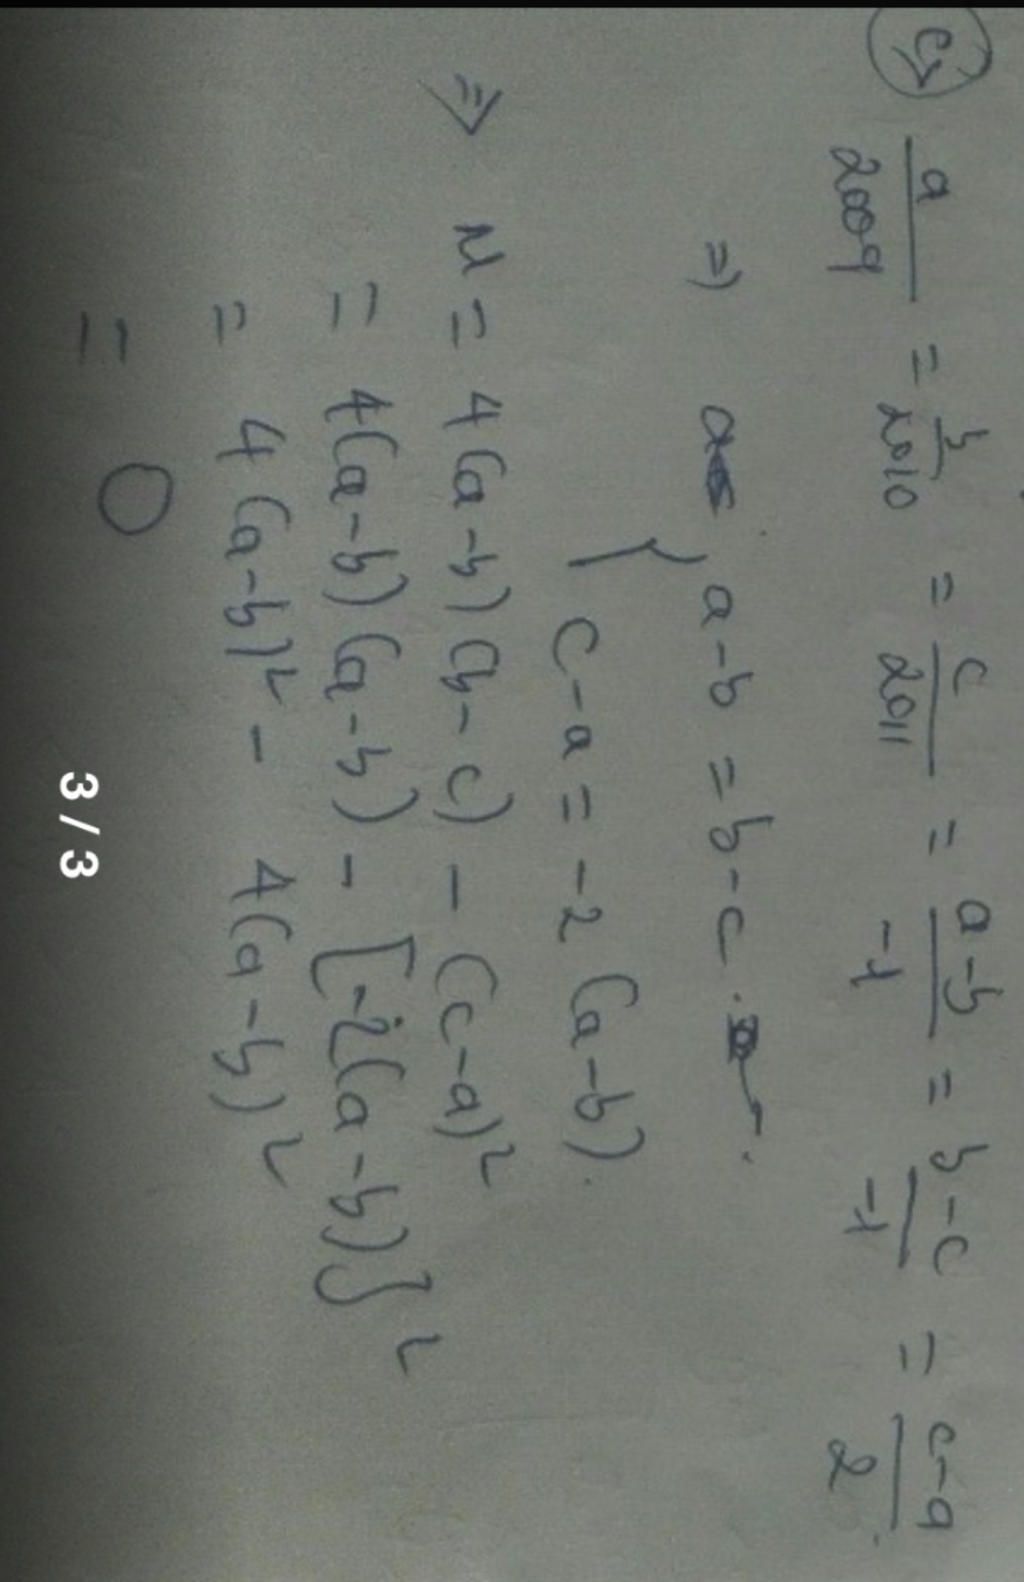 c,
a/2009 = b/2010 = c/2011 = a-b/-1 = b-c/-1 = c-a/2
=) a { a-b = b-c
c-a = -2 (a-b).
=> M = 4(a-b)(b-c) - (c-a)²
= 4(a-b)(a-b) - [-2(a-b)]²
= 4(a-b)² - 4(a-b)²
= 0
3/3